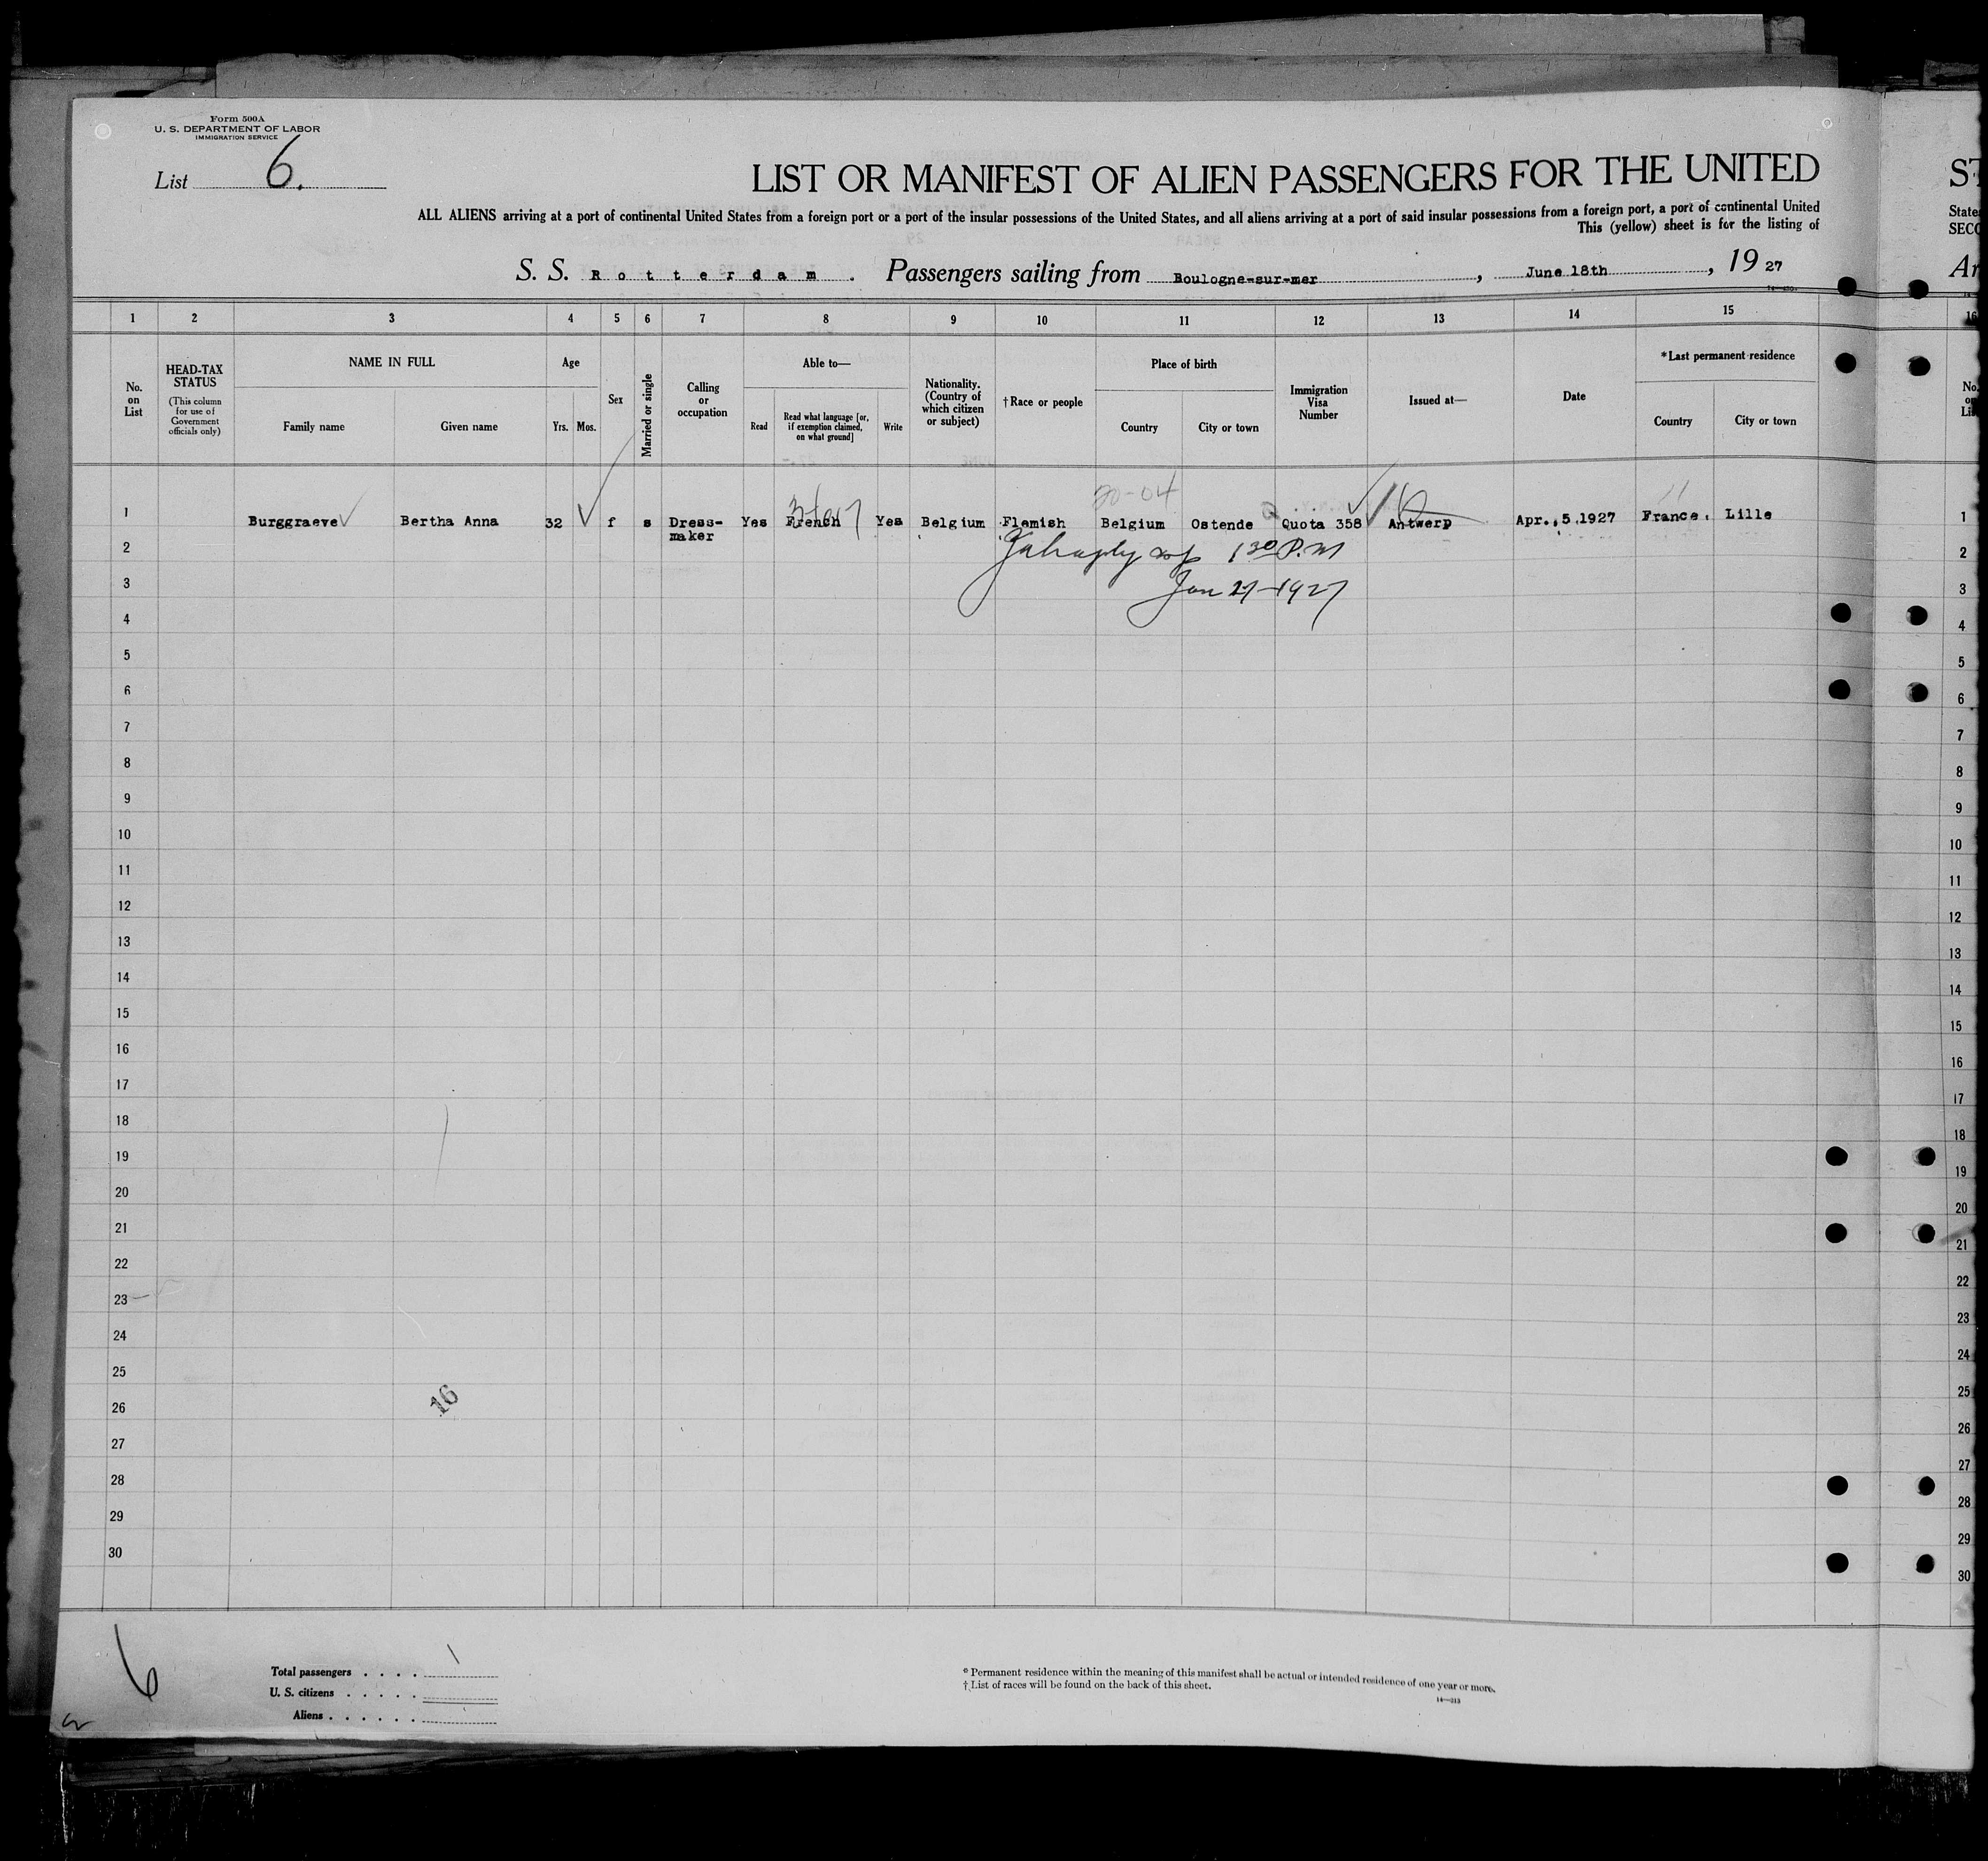 Form 500A
U. S. DEPARTMENT OF LABOR
IMMIGRATION SERVICE
List 6.
LIST OR MANIFEST OF ALIEN PASSENGERS FOR THE UNITED
ST
ALL ALIENS arriving at a port of continental United States from a foreign port or a port of the insular possessions of the United States, and all aliens arriving at a port of said insular possessions from a foreign port, a port of continental United
State
This (yellow) sheet is for the listing of
SECO
S. S. Rotterdam. Passengers sailing from Boulogne-sur-mer, June 18th, 1927
Ar
1 2 3 4 5 6 7 8 9 10 11 12 13 14 15
16
No. on List
HEAD-TAX STATUS
(This column for use of Government officials only)
NAME IN FULL
Family name Given name
Age
Yrs. Mos.
Sex
Married or single
Calling or occupation
Able to—
Read
Read what language [or, if exemption claimed, on what ground]
Write
Nationality. (Country of which citizen or subject)
†Race or people
Place of birth
Country City or town
Immigration Visa Number
Issued at—
Date
*Last permanent residence
Country City or town
20-04
1 Burggraeve Bertha Anna 32 f s Dress-maker Yes French Yes Belgium Flemish Belgium Ostende Quota 358 Antwerp Apr. 5 1927 France Lille 1
2 1 30 P.M 2
3 1927 3
4 4
5 5
6 6
7 7
8 8
9 9
10 10
11 11
12 12
13 13
14 14
15 15
16 16
17 17
18 18
19 19
20 20
21 21
22 22
23 23
24 24
25 25
26 26
16
27 27
28 28
29 29
30 30
6
Total passengers . . . . 1
U. S. citizens . . . . .
Aliens . . . . . .
* Permanent residence within the meaning of this manifest shall be actual or intended residence of one year or more.
† List of races will be found on the back of this sheet.
14—213